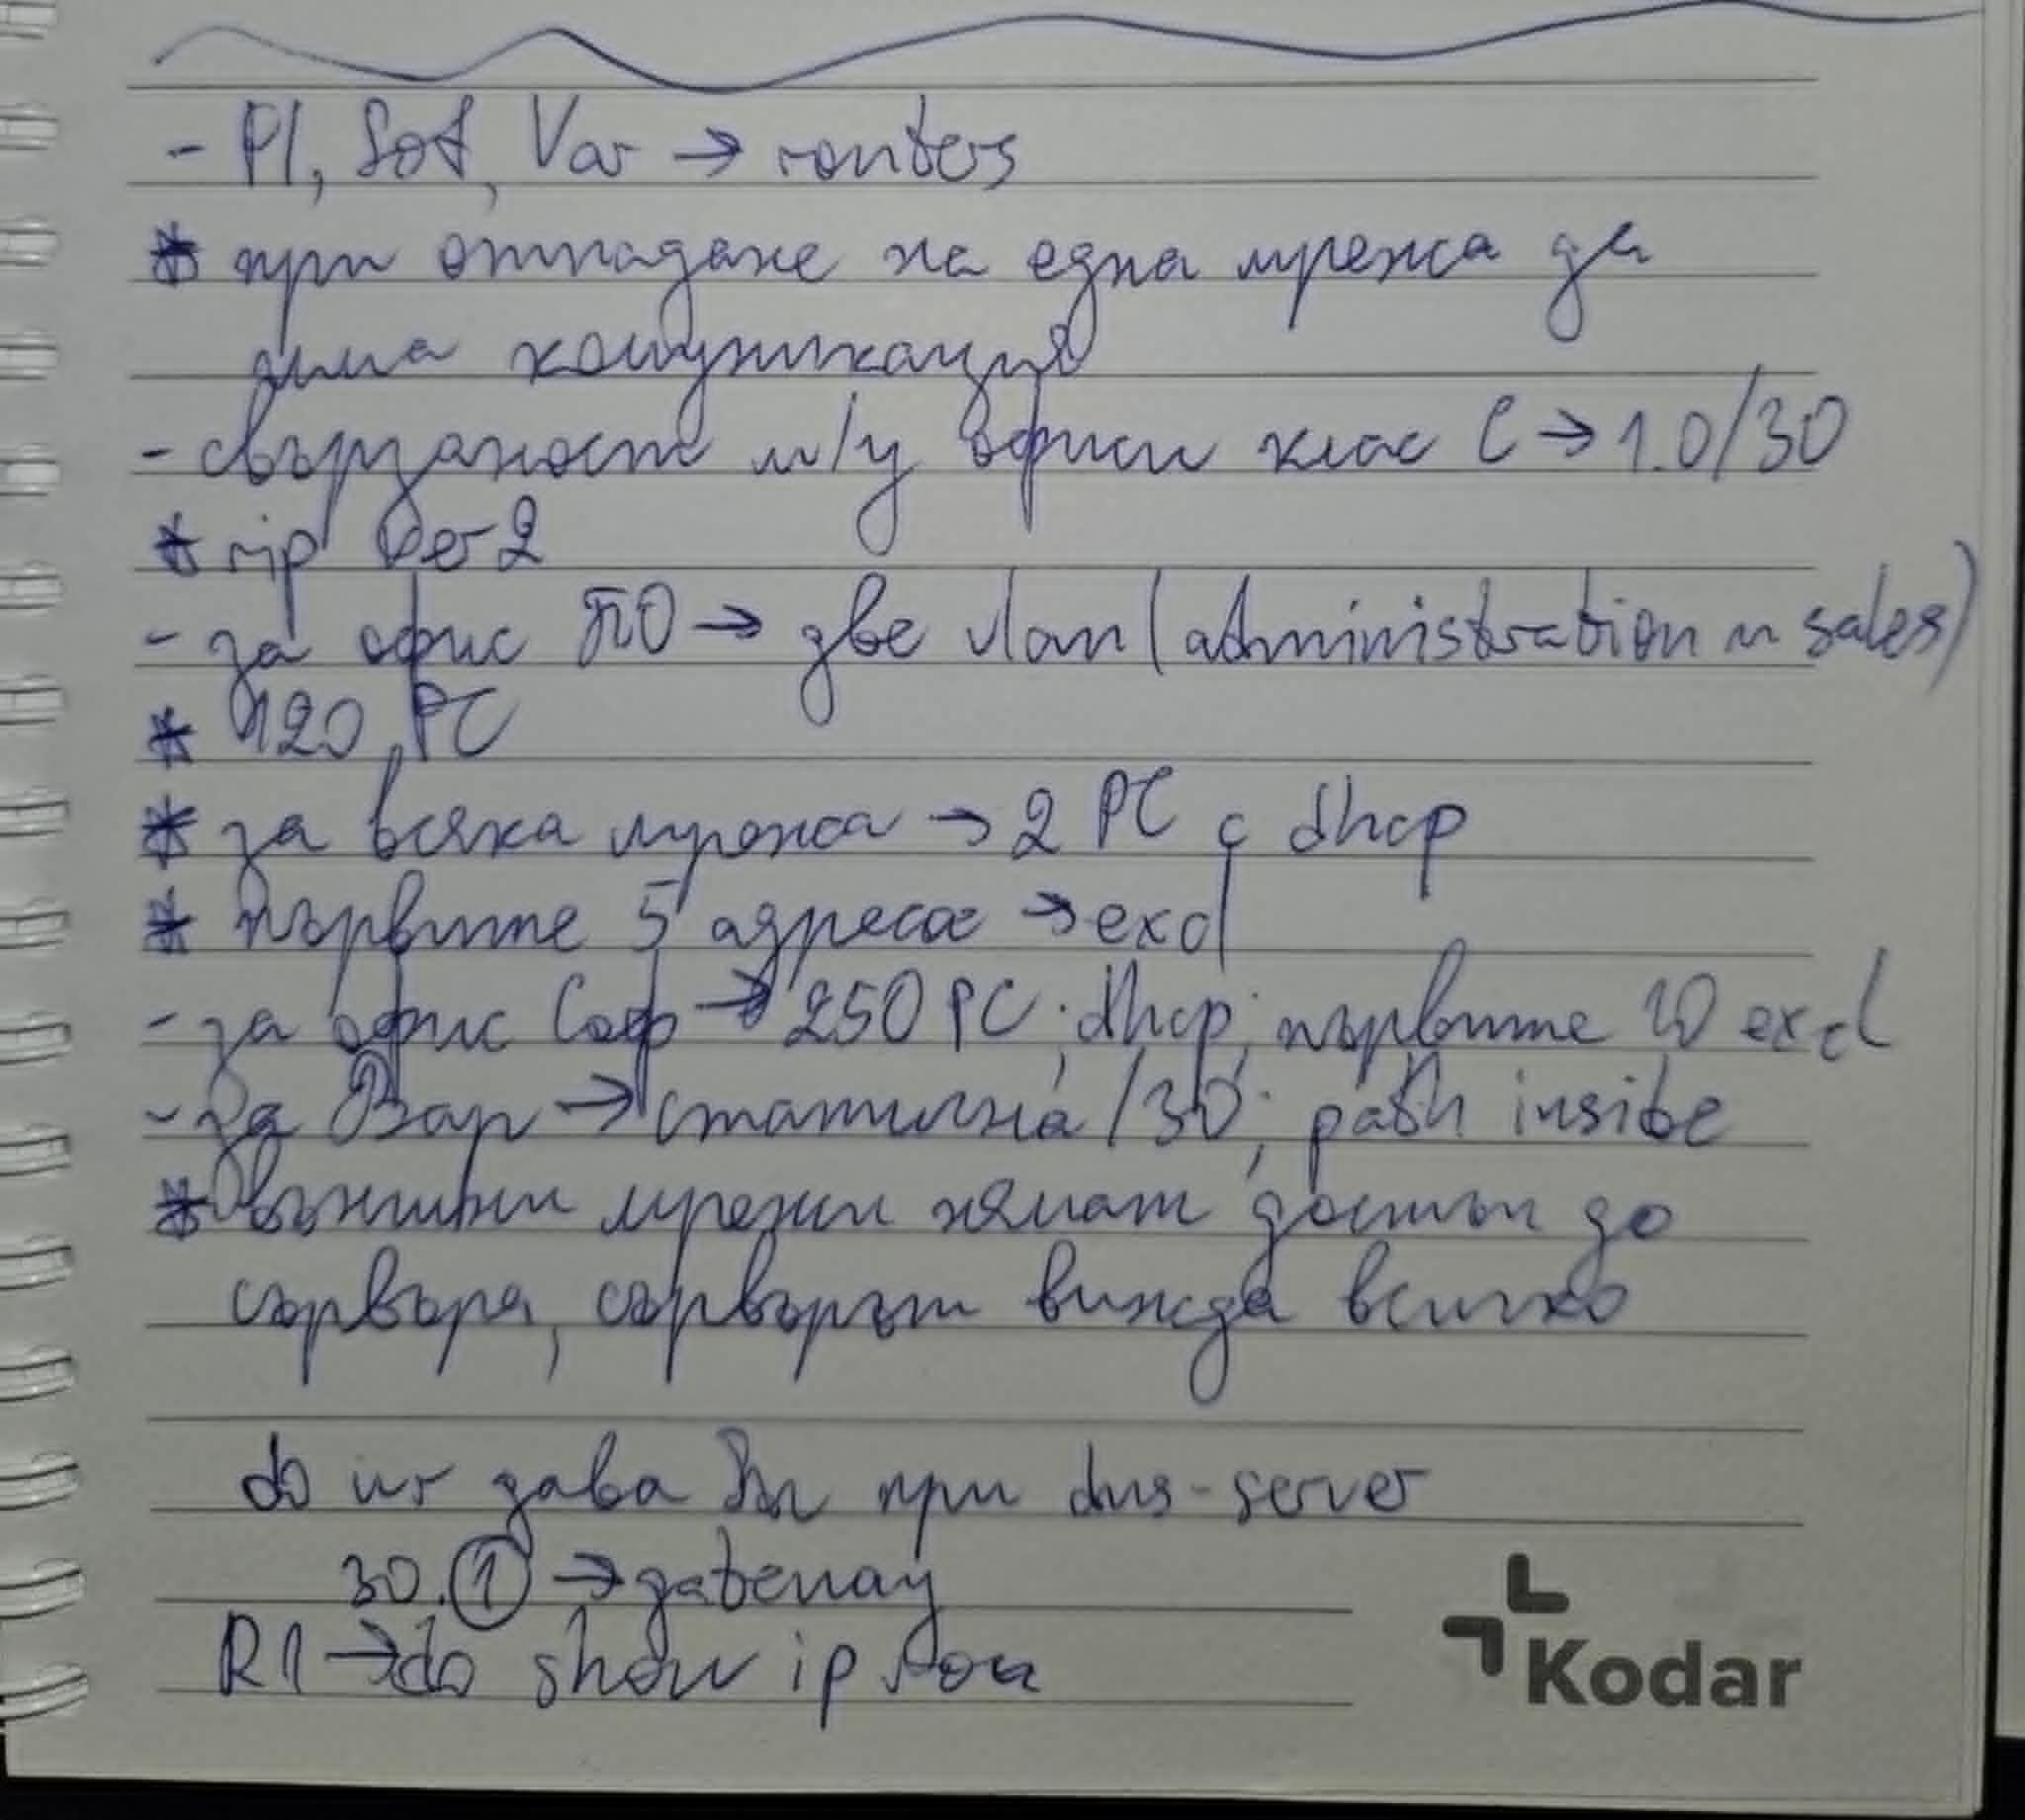 - Pl, Sof, Var → routers
* при отпадане на една мрежа да
има комуникация
- свързаност м/у офиси клас C → 1.0/30
* rip ver 2
- за офис → две vlan (administration и sales)
* 120 PC
* за всяка мрежа → 2 PC с dhcp
* първите 5 адреса → excl
- за офис Соф → 250 PC; dhcp; първите 10 excl
- за Вар → статична /30; path inside
* Външни мрежи нямат достъп до
сървъра, сървърът вижда всичко
do wr дава при dns-server
30.1 → gateway
R1 → do show ip rou
Kodar